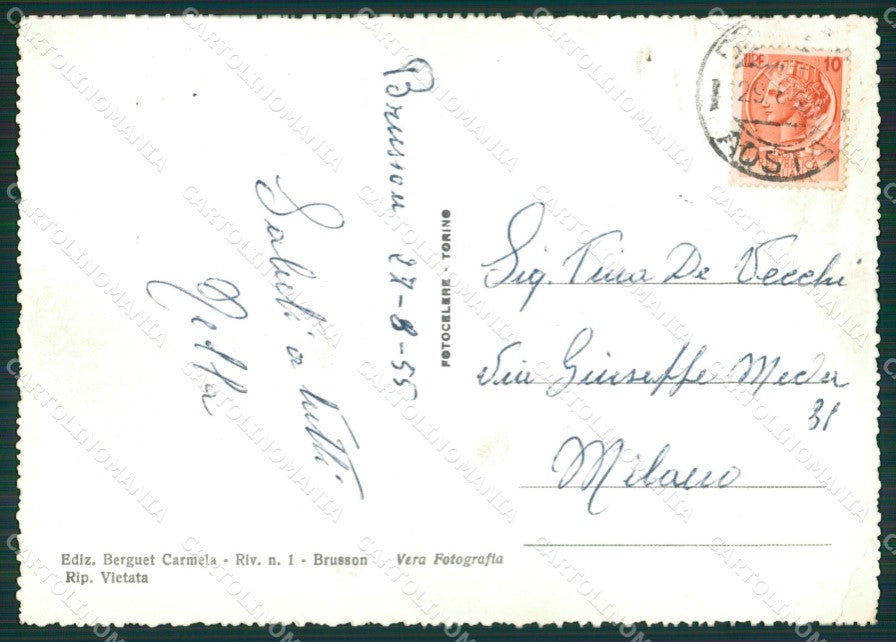 Brusson 27-8-55
Saluti a tutti
FOTOCELERE - TORINO
10
AOSTA
Sig. Tina De Vecchi
Via Giuseppe Meda
31
Milano
Ediz. Berguet Carmela - Riv. n. 1 - Brusson Vera Fotografia
Rip. Vietata
CARTOLINOMANIA